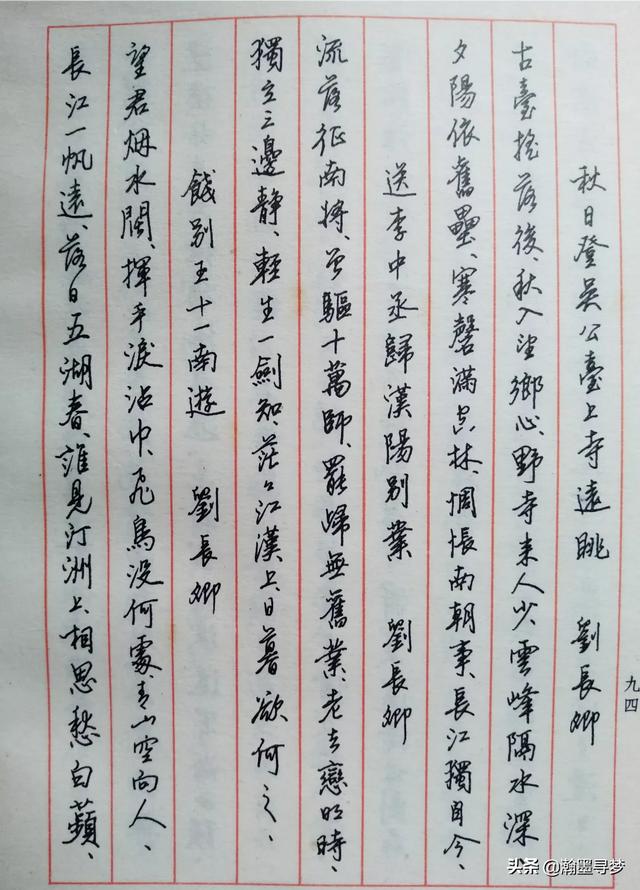 九四
秋日登吳公臺上寺遠眺 劉長卿
古臺搖落後、秋入望鄉心、野寺来人少、雲峰隔水深
夕陽依舊壘、寒磬滿空林、惆悵南朝事、長江獨自今、
送李中丞歸漢陽别業 劉長卿
流落征南將、曾驅十萬師、罷歸無舊業、老去戀明時、
獨立三邊静、輕生一劍知、茫々江漢上、日暮欲何之、
餞别王十一南遊 劉長卿
望君烟水闊、揮手淚沾巾、飛鳥没何處、青山空向人、
長江一帆遠、落日五湖春、誰見汀洲上、相思愁白蘋、
头条 @瀚墨寻梦